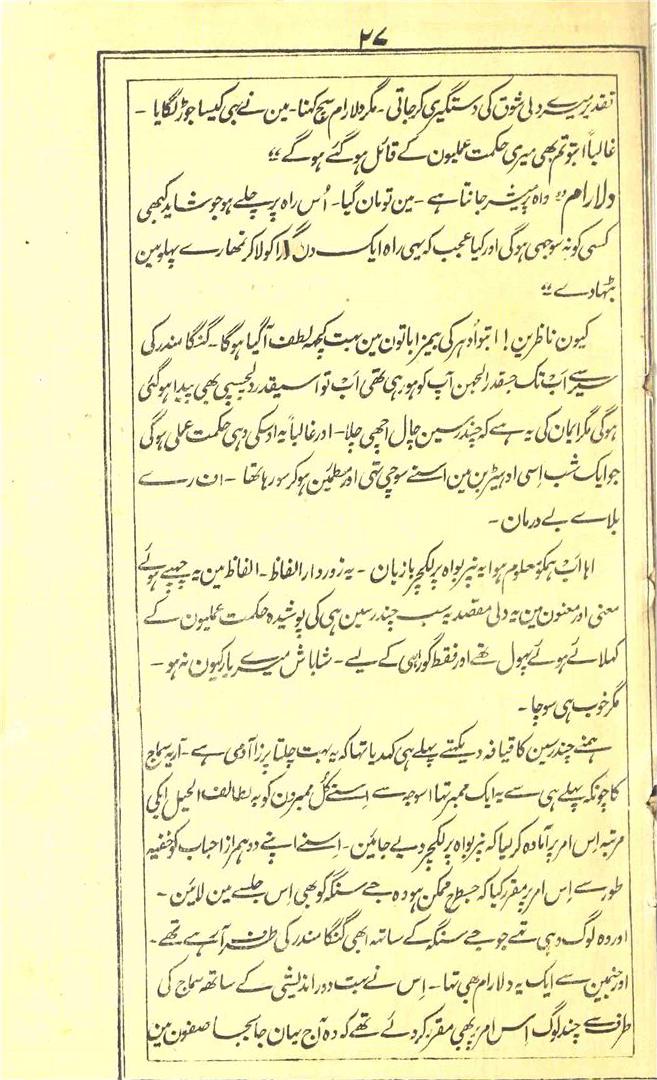 ۲۷
تقدیر میرے دلی شوق کی دستگیری کرجاتی - مگر دلارام سچ کہنا - مین نے بھی کیسا جوڑ لگایا -
غالباً ابتو تم بھی میری حکمت عملیون کے قائل ہو گئے ہوگے "
دلارام " واہ پرمیشر جانتا ہے - مین تو مان گیا - اُس راہ پر چلے ہو جو شاید کبھی
کسی کو نہ سوجھی ہوگی اور کیا عجب کہ یہی راہ ایک دن گورا کو لا کر تمھارے پہلو مین
بٹھا دے "
کیون ناظرین ! ابتو اُدہر کی بیمزا باتون مین بہت کچھ لطف آگیا ہوگا - گنگا مندر کی
سیر سے اَب تک جسقدر الجہن آپ کو ہو رہی تھی اَب تو اسیقدر دلچسپی بھی پیدا ہو گئی
ہوگی مگر ایمان کی یہ ہے کہ چندر سین چال اچھی چلا - اور غالباً یہ اوسکی وہی حکمت عملی ہوگی
جو ایک شب اِسی ادہیڑبن مین اسنے سوچی تہی اور مطمئن ہو کر سو رہا تھا - اف رے
بلاے بے درمان -
اہا اَب ہمکو معلوم ہوا یہ نیربواہ پر لکچر بازیان - یہ زوردار الفاظ - الفاظ مین یہ چہپے ہوئے
معنی اور معنون مین یہ دلی مقصد یہ سب چندر سین ہی کی پوشیدہ حکمت عملیون کے
کہلائے ہوئے پھول تھے اور فقط گورا ہی کے لیے - شاباش میرے یار کیون نہ ہو -
مگر خوب ہی سوجا -
ہمنے چندر سین کا قیافہ دیکہتے پہلے ہی کہدیا تہا کہ یہ بہت چلتا پرزا آدمی ہے - آریہ سماج
کا چونکہ پہلے ہی سے یہ ایک ممبر تہا اسوجہ سے اِسنے کُل ممبرون کو بہ لطائف الحیل ایکی
مرتبہ اِس امر پر آمادہ کر لیا کہ نیربواہ پر لکچر دیے جایئن - اِسنے اپنے دو ہمراز احباب کو خفیہ
طور سے اِس امر پر مقرر کیا کہ جسطرح ممکن ہو وہ جے سنگہ کو بھی اِس جلسے مین لایئن -
اور وہ لوگ وہی تہے جو جے سنگہ کے ساتہہ ابھی گنگا مندر کی طرف آ رہے تھے -
اور جنمین سے ایک یہ دلارام بھی تہا - اِس نے بہت دور اندیشی کے ساتھ سماج کی
طرف سے چند لوگ اِس امر پر بھی مقرر کر دئے تھے کہ وہ آج یہان جابجا صفون مین